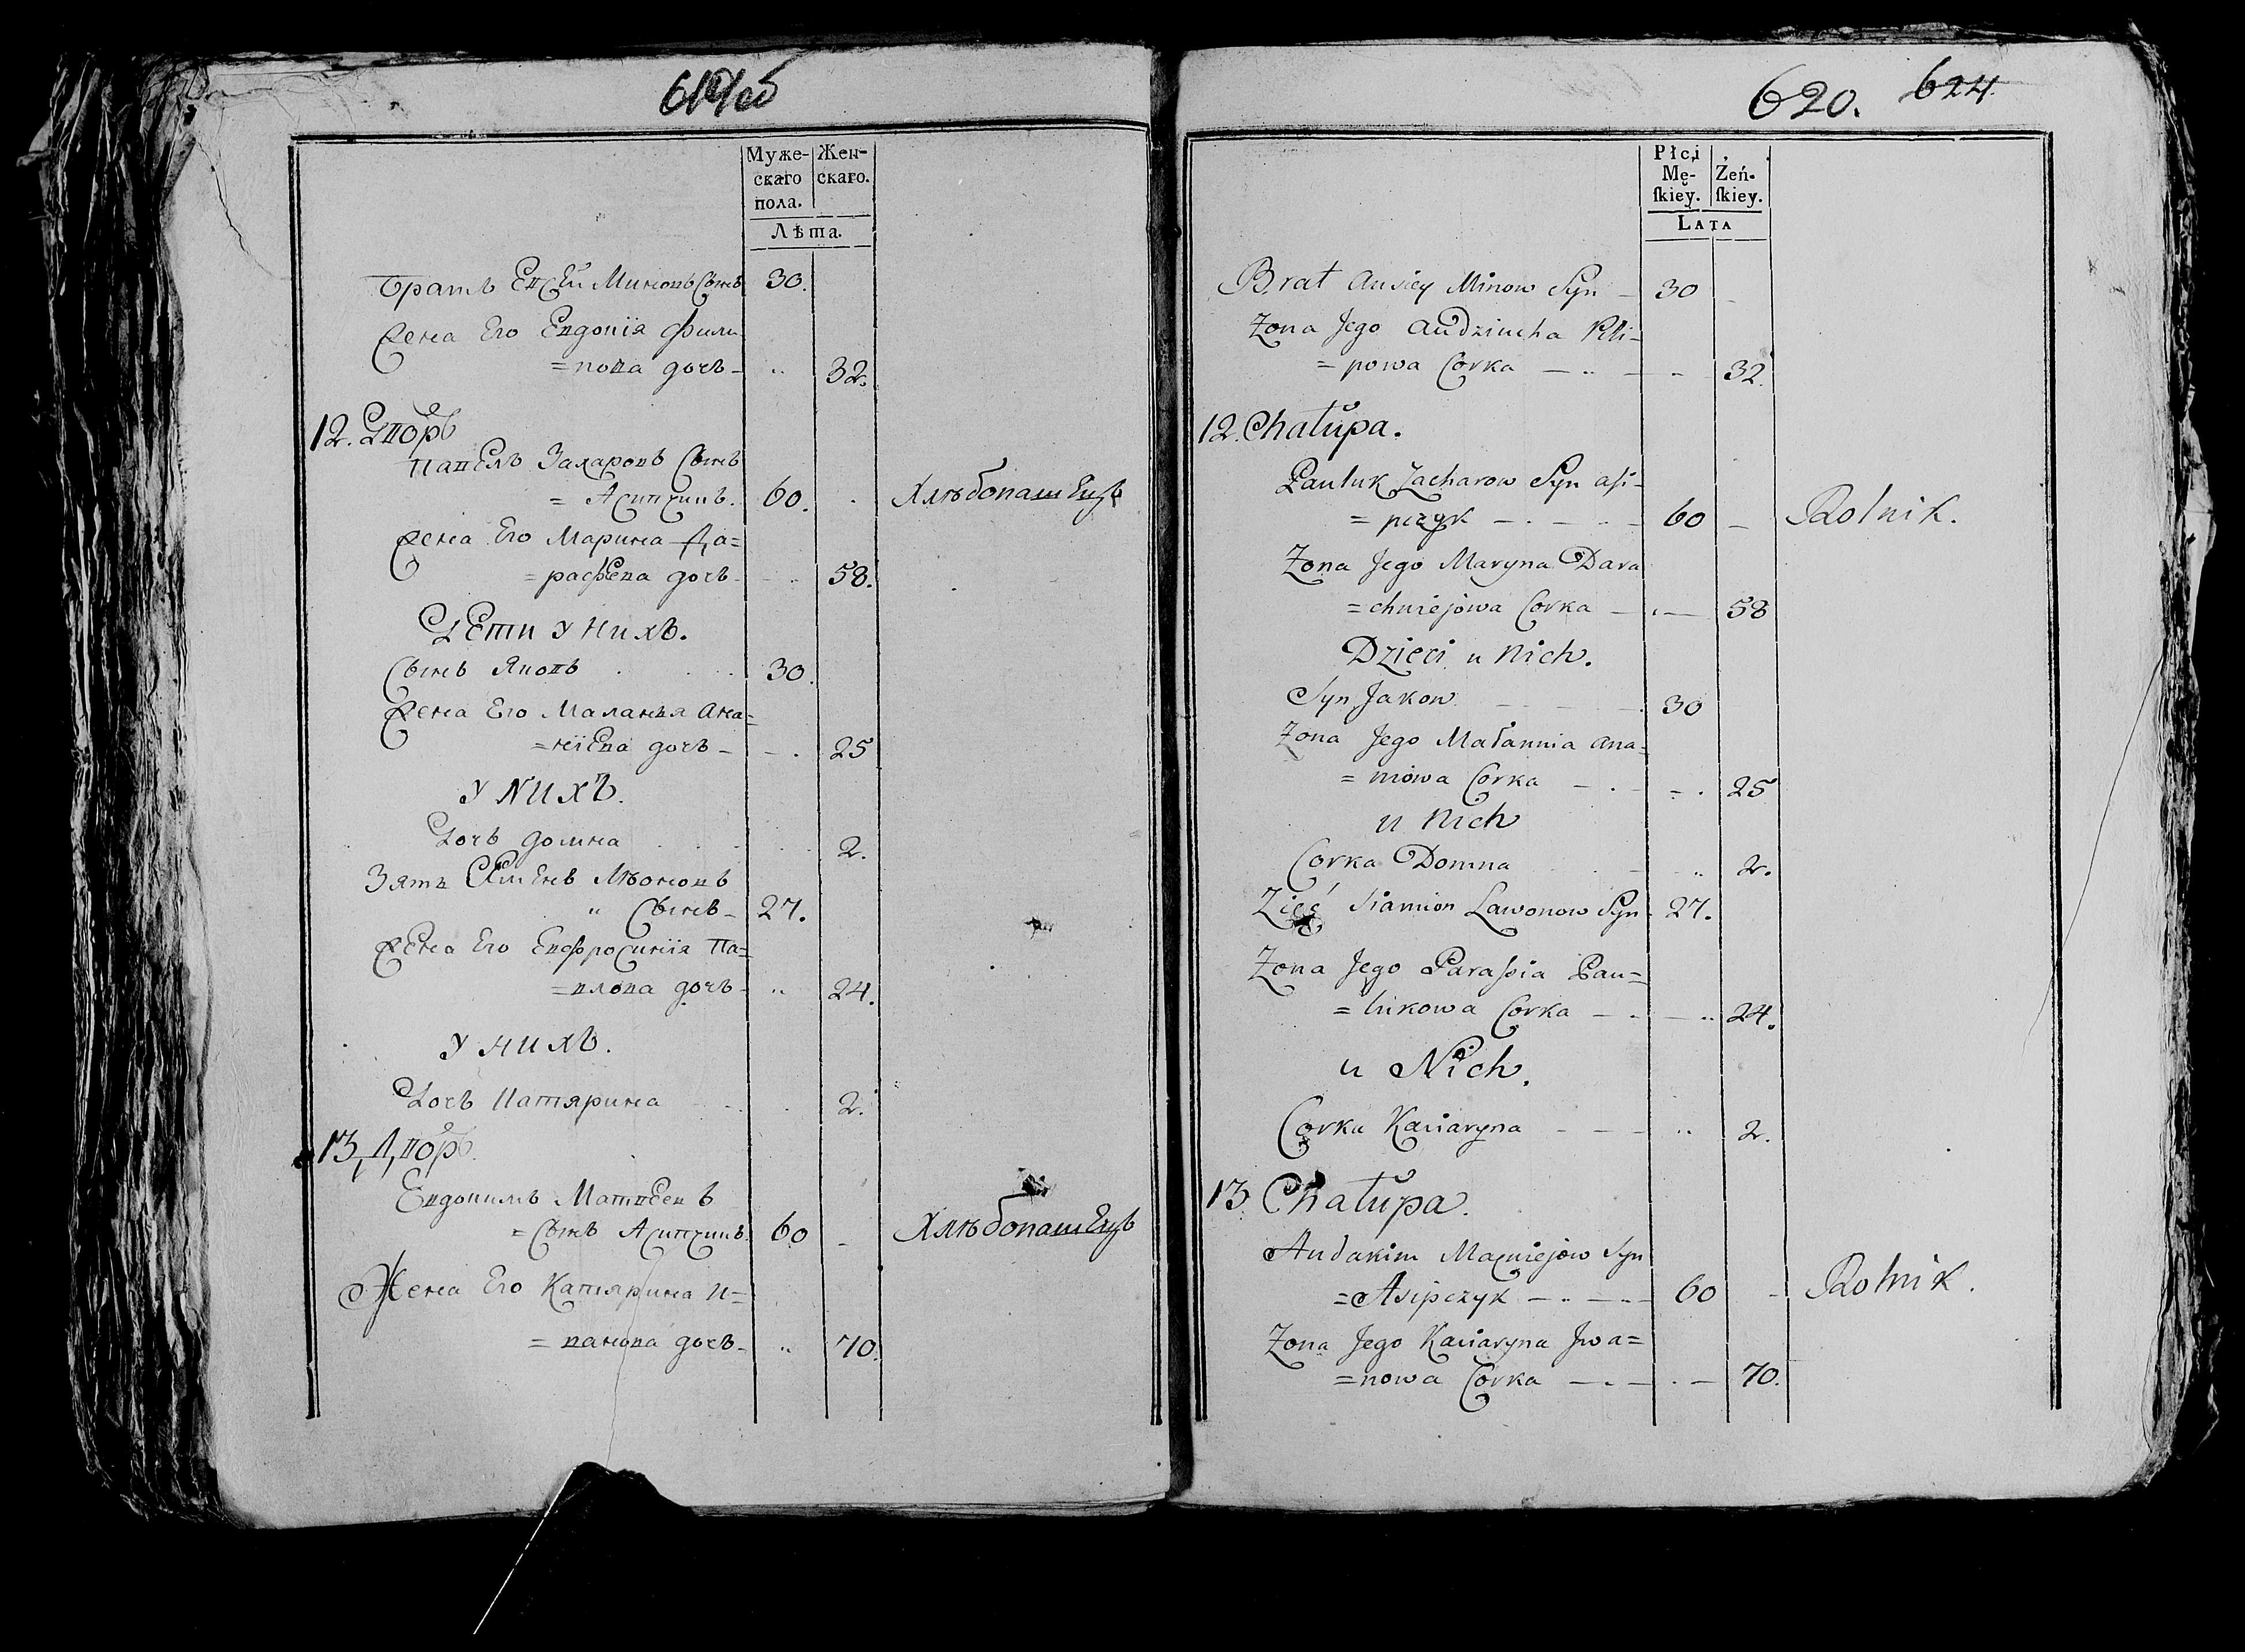 619об
Муже-
скаго
пола.
Жен-
скаго.
Лѣта.
Братъ Евсей Миновъ Сынъ 30.
Жена Его Евдокія Фили
=пова дочь - 32.
12. Дворъ
Павелъ Захаровъ Сынъ
= Асипчикъ. 60. Хлѣбопашецъ
Жена Его Марина Да=
=рафѣева дочь - 58.
Дети у нихъ.
Сынъ Яковъ 30.
Жена Его Маланья Ана=
=ніева дочь - 25
У нихъ.
Дочь Домна 2.
Зять Семенъ Лѣоновъ
" Сынъ - 27.
Жена Его Евфросинія Па=
=влова дочь - 24.
У нихъ.
Дочь Катярина 2.
13. Дворъ.
Евдокимъ Матвеевъ
=Сынъ Асипчикъ 60 Хлѣбопашецъ
Жена Его Катярина И=
=ванова дочь - 70.
620. 624
Płci
Mę-
ſkiey.
Żeń-
ſkiey.
LATA
Brat Ausiey Minow Syn - 30
Zona Jego Audziucha Pili-
=powa Corka - 32.
12. Chałupa.
Pauluk Zacharow Syn asi-
=pczyk - 60 Rolnik.
Zona Jego Maryna Dara
=chwiejowa Corka - 58
Dzieci u Nich.
Syn Jakow 30
Zona Jego Małannia Ana=
=niowa Corka - 25
u Nich
Corka Domna 2.
Zięć Siamion Lawonow Syn 27.
Zona Jego Paraſsia Pau=
=lukowa Corka - 24.
u Nich.
Corka Kaciaryna - 2.
13. Chałupa.
Audakim Maćwiejow Syn
=Asipczyk - 60 Rolnik.
Zona Jego Kaciaryna Jwa=
=nowa Corka - 70.